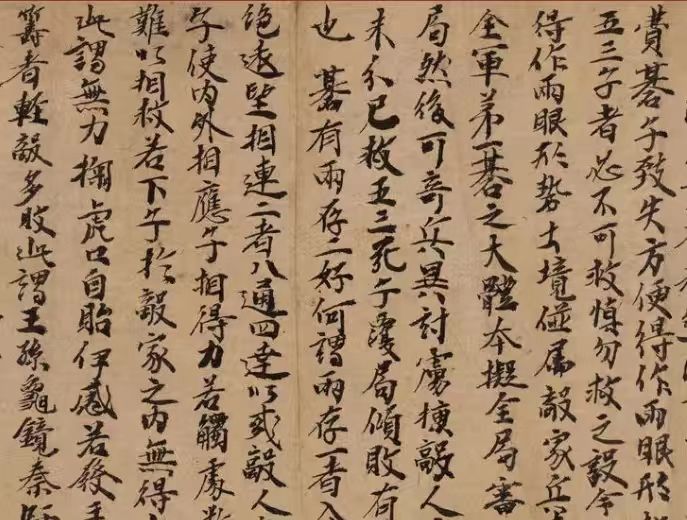 費碁子致失方便得作兩眼形
五三子者必不可救慎勿救之設令
得作兩眼形勢土境碰属敵家兵
全軍第一碁之大體本擬全局審
局然後可奇兵異討虜掠敵人
未分已救五三死子覆局傾敗有
也 碁有兩存二好何謂兩存一者入
絕遠望相連二者八通四達以或敵人
子使內外相應子相得力若觸處
難以相救若下子於敵家之內無得
此謂無力捅虎口自貽伊慼若發
籌者輕敵多敗此謂王孫龜鏡秦師